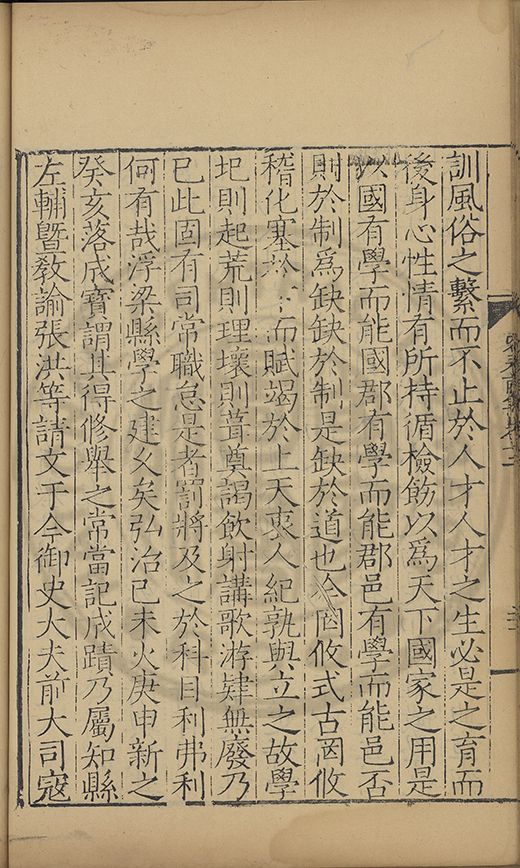 訓風俗之繫而不止於人才人才之生必是之育而
後身心性情有所持循檢飭以爲天下國家之用是
以國有學而能國郡有學而能郡邑有學而能邑否
則於制爲缺缺於制是缺於道也今罔攸式古罔攸
稽化塞於下而賦竭於上天衷人紀孰與立之故學
圮則起荒則理壞則葺奠謁飲射講歌游肄無廢乃
已此固有司常職怠是者罰將及之於科目利弗利
何有哉浮梁縣學之建久矣弘治己未火庚申新之
癸亥落成寶謂其得修舉之常當記成蹟乃屬知縣
左輔暨教諭張洪等請文于今御史大夫前大司寇